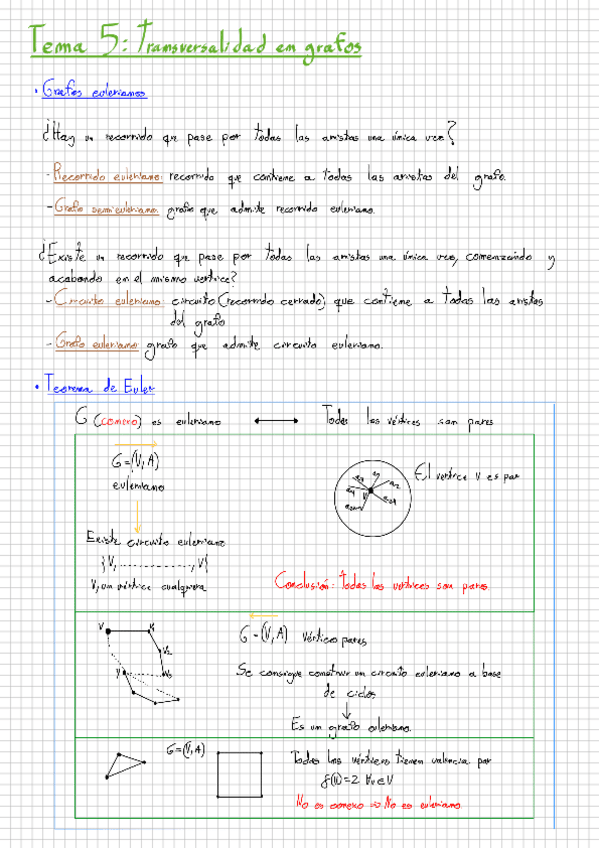 Tema 5: Transversalidad en grafos
• Grafos eulerianos
¿Hay un recorrido que pase por todas las aristas una única vez?
- Recorrido euleriano: recorrido que contiene a todas las aristas del grafo.
- Grafo semieuleriano: grafo que admite recorrido euleriano.
¿Existe un recorrido que pase por todas las aristas una única vez, comenzando y
acabando en el mismo vertice?
- Circuito euleriano circuito (recorrido cerrado) que contiene a todas las aristas
del grafo
- Grafo euleriano: grafo que admite circuito euleriano.
• Teorema de Euler
G (conexo) es euleriano ⟷ Todos los vértices son pares
G=(V,A)
euleriano
El vertice V es par
Existe circuito euleriano
{V, ............, V}
V, un vértice cualquiera
Conclusión: todos los vertices son pares
V V₁
V₂
V V₃
G=(V,A) Vértices pares
Se consigue construir un circuito euleriano a base
de ciclos
↓
Es un grafo euleriano.
G=(V,A)
Todos los vértices tienen valencia par
∀v∈V
No es conexo => No es euleriano